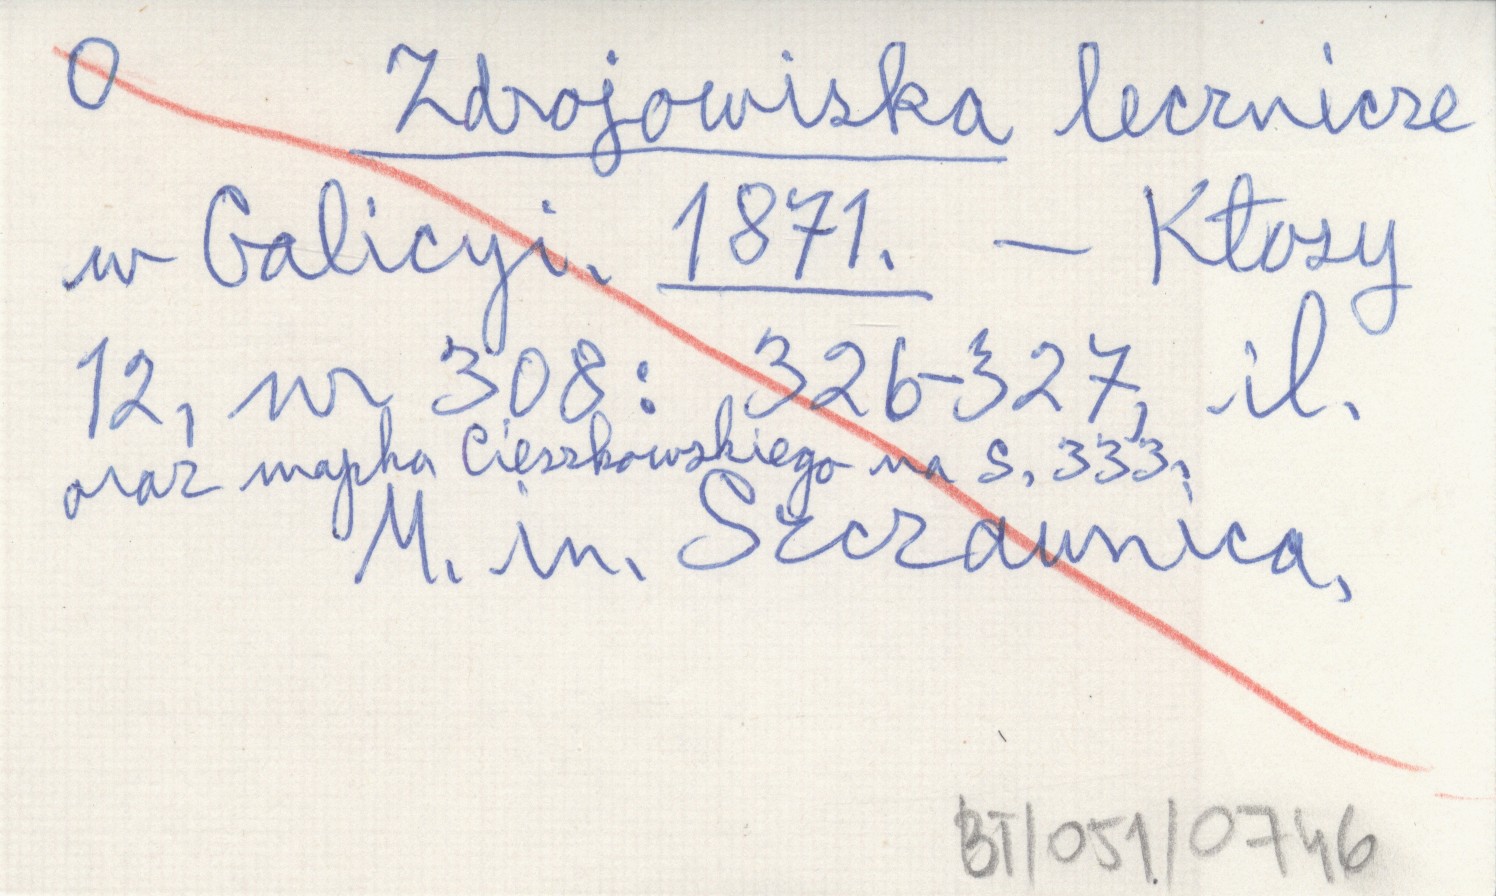 O Zdrojowiska lecznicze
w Galicyi. 1871. — Kłosy
12, nr 308: 326-327, il.
oraz mapka Cieszkowskiego na s. 333.
M. in. Szczawnica,
BT/051/0746